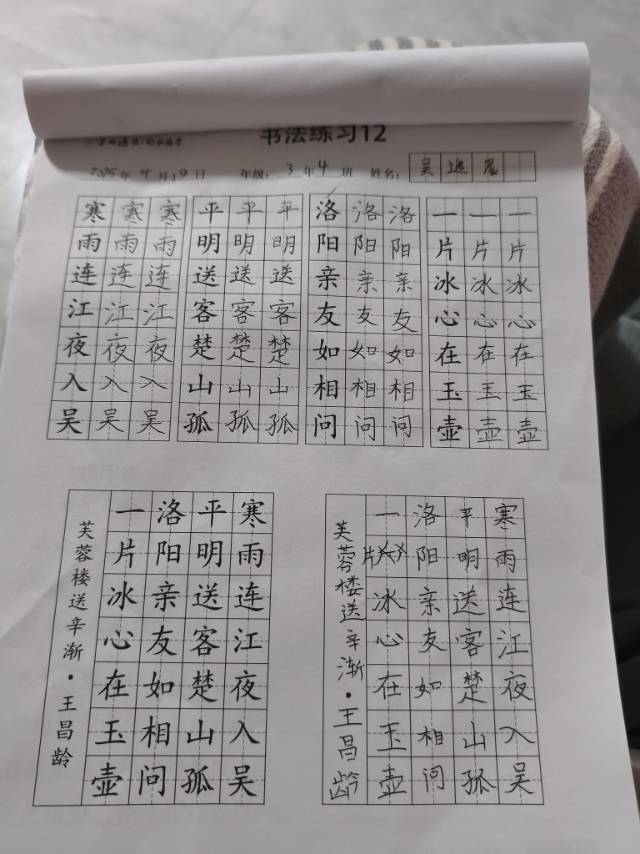 书法练习12
2025年4月19日 年级：3年4班 姓名：吴
寒寒寒
雨雨雨
连连连
江江江
夜夜夜
入入入
吴吴吴
平平平
明明明
送送送
客客客
楚楚楚
山山山
孤孤孤
洛洛洛
阳阳阳
亲亲亲
友友友
如如如
相相相
问问问
一一一
片片片
冰冰冰
心心心
在在在
玉玉玉
壶壶壶
芙蓉楼送辛渐·王昌龄
寒雨连江夜入吴
平明送客楚山孤
洛阳亲友如相问
一片冰心在玉壶
芙蓉楼送辛渐·王昌龄
寒雨连江夜入吴
平明送客楚山孤
洛阳亲友如相问
一片冰心在玉壶